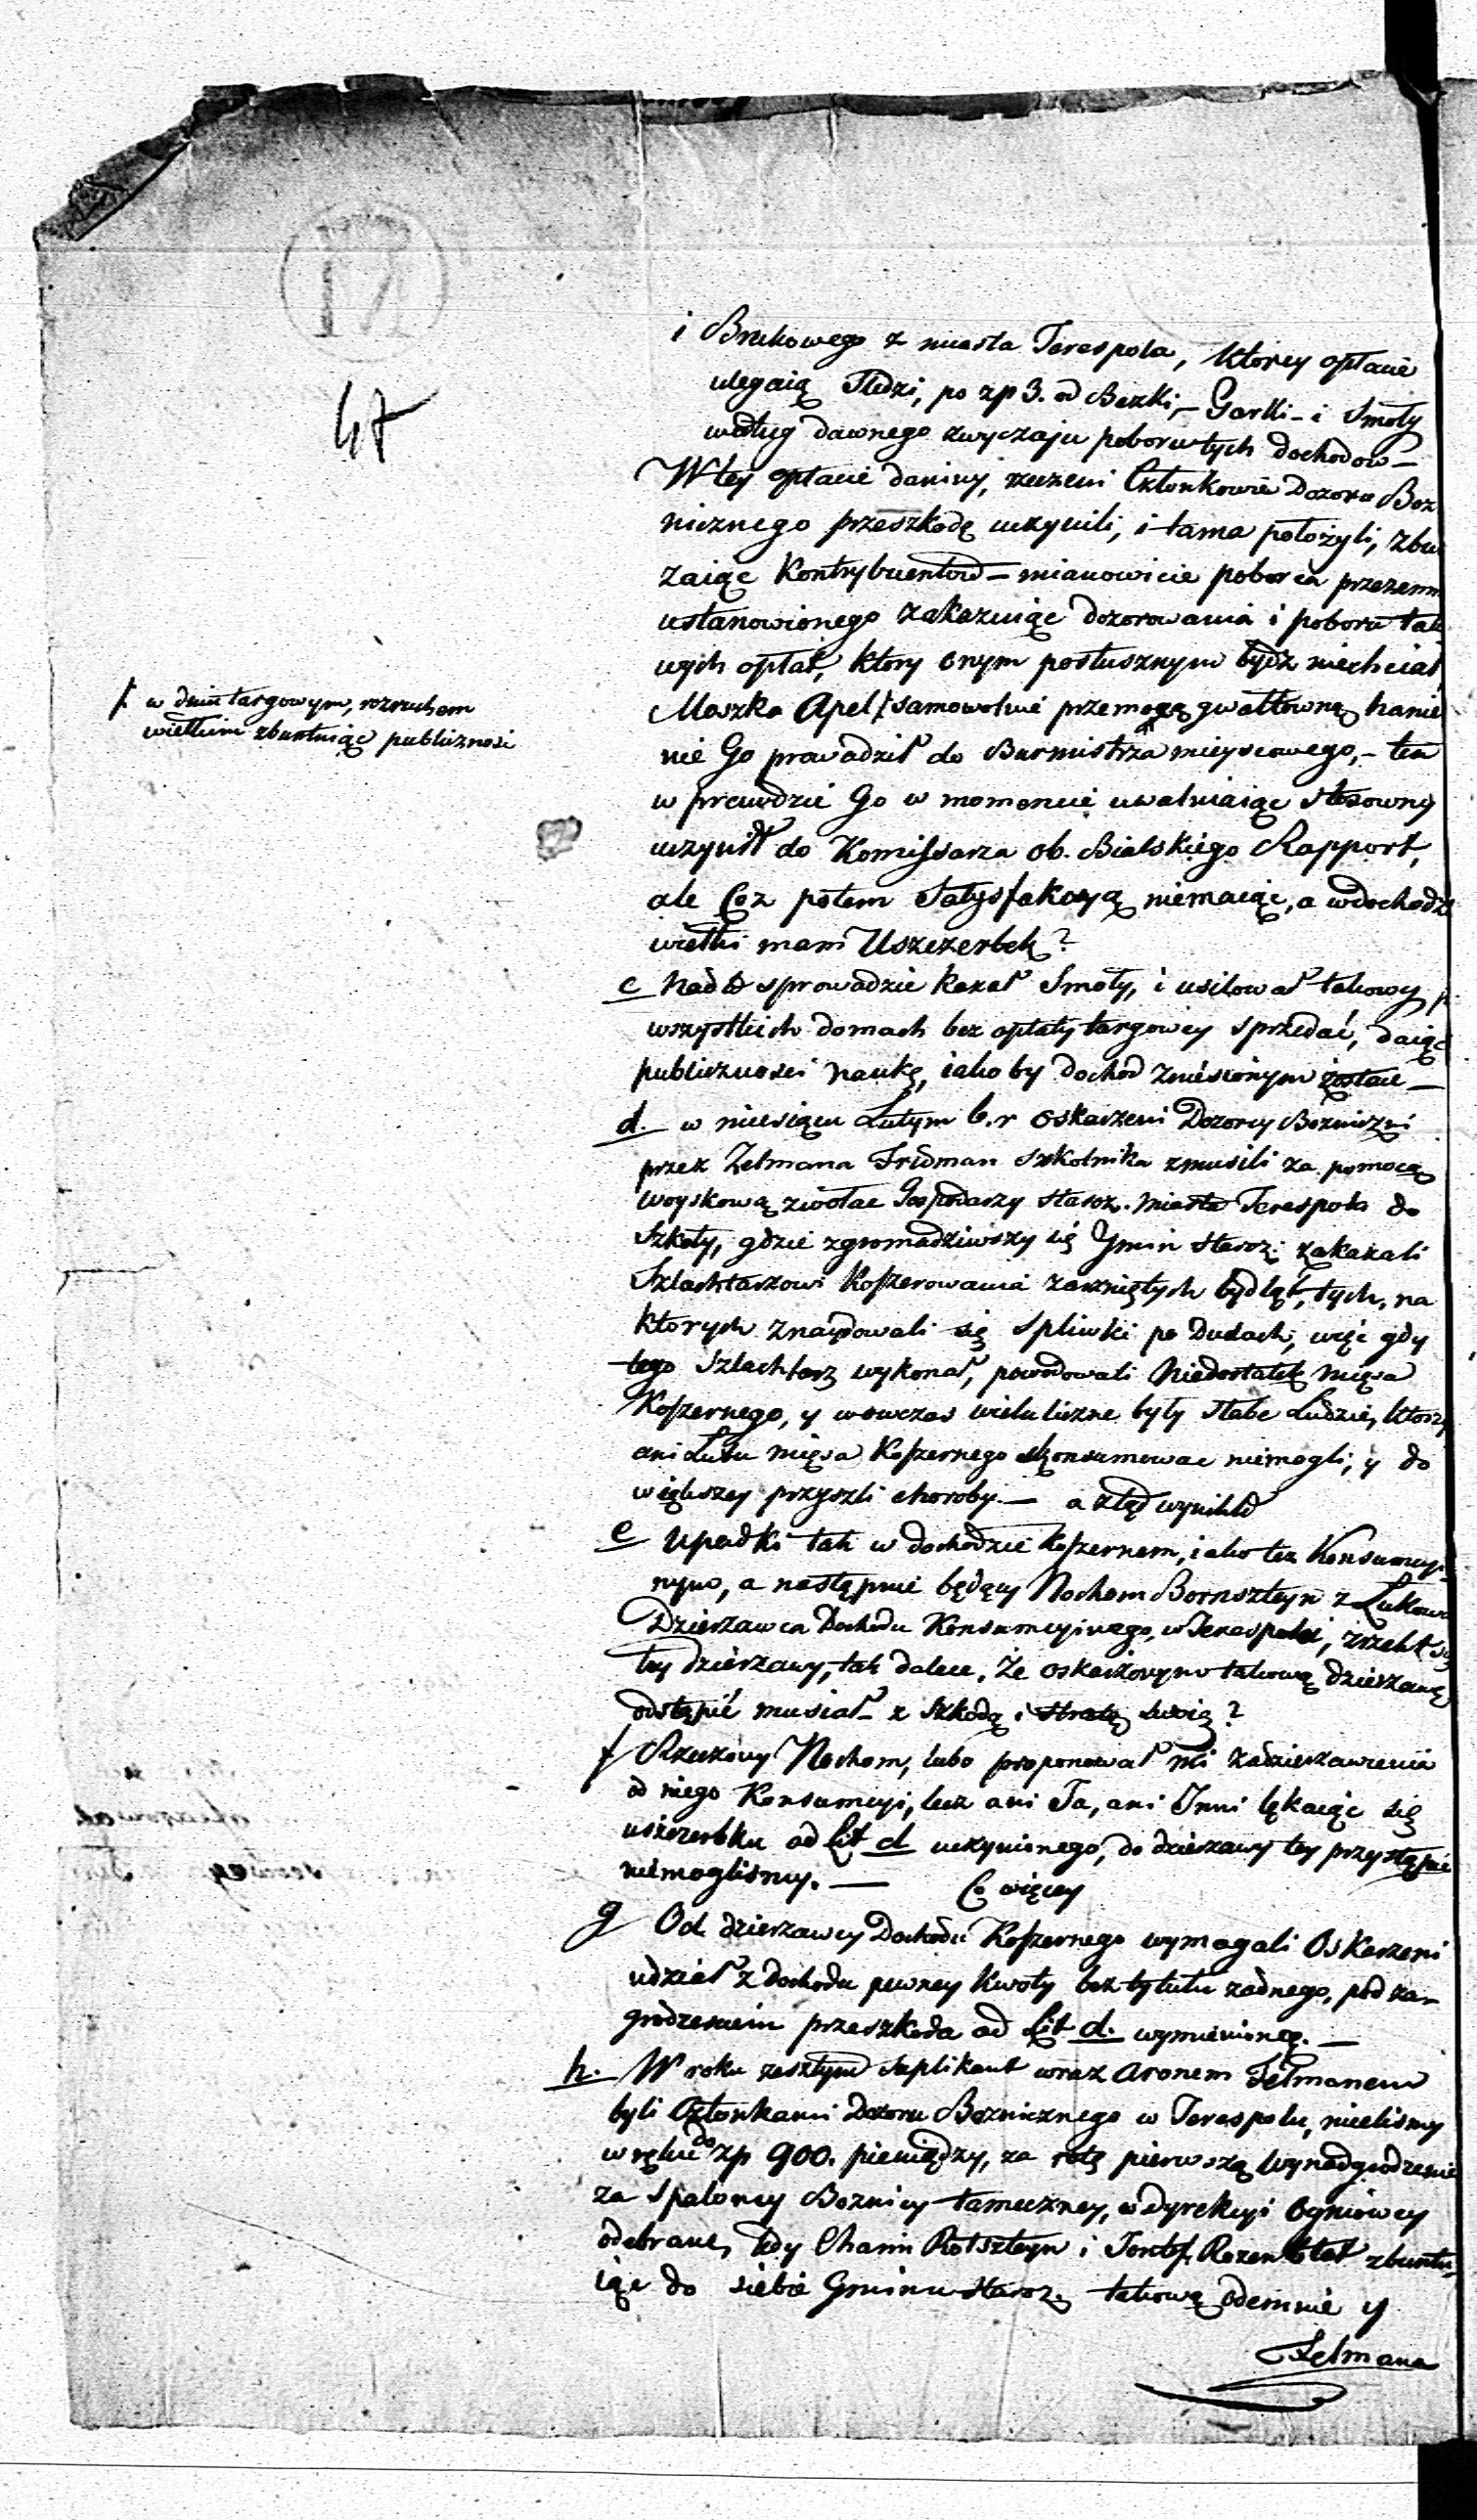 47
i Brukowego z miasta Terespola, ktorey opłacie
ulegaią Sledzi, po zp 3. od Beczki, – Garki – i Smoły
według dawnego zwyczaju poboru tych dochodow –
W tey opłacie daniny, rzeczeni Członkowie Dozoru Boz
nicznego przeszkodę uczynili, i tama położyli, zbu
zaiąc Kontrybuentow – mianowicie poborca przezemn
ustanowionego zakazuiąc dozorowania i poboru tak
wych opłat, ktory onym posłusznym bydz niechciał
Moszka Apel /: samowolnie przemogą gwałtowną hanie
nie Go prowadził do Burmistrza mieyscowego, – ten
w prawdzie Go w momencie uwalniaiąc stosowny
uczynił do Komissarza ob. Bialskiego Rapport,
ale Coz potem Satysfakcyą niemaiąc, a w dochodz
wielki mam Uszczerbek?
/: w dniu targowym, rozruchem
wielkim zbuntuiąc publicznosci
c Nadto sprowadzic kazał Smoły, i usilował takowy p
wszystkich domach bez opłaty targowey sprzedać, daiąc
publicznosci naukę, iakoby dochod zniesionym zostaie –
d. w miesiącu Lutym b.r oskarzeni Dozorcy Bozniczni
przez Zelmana Fridman Szkolnika zmusili za pomocą
woyskową zwołac Gospodarzy staroz. miasta Terespola do
Szkoły, gdzie zgromadziwszy się Gmin staroz. zakazali
Szlachtarzowi Koszerowania zarzniętych bydląt, tych, na
ktorych znaydowali się spliwki po Dudach, więc gdy
tego Szlachtarz wykonał, powodowali Niedostatek mięsa
Koszernego, y wowczas wieluliczne były słabe Ludzie, ktorzy
ani Lutu mięsa Koszernego skonsumowac niemogli, y do
większey przyszli choroby. – a ztąd wynikło
e Upadki tak w dochodzie Koszernem, iako tez Konsumcyi
nym, a następnie będący Nochom Bornszteyn z Łukowa
Dzierzawca Dochodu Konsumcyinego, w Terespolu, zrzekł się
tey dzierzawy, tak dalece, że oskarżonym takową dzierzawę
odstąpić musiał – z Szkodą i stratą swoią?
f Rzeczony Nochom, lubo proponował mi zadzierzawienia
od niego Konsumcyi, lecz ani Ja, ani Inni lękaiąc się
uszczerbku od Lit d uczynionego, do dzierzawy tey przystąpić
niemoglismy. – Co więcey
g Od dzierzawcy Dochodu Koszernego wymagali Oskarzeni
udział z dochodu pewney kwoty bez tytułu zadnego, pod za-
grodzeniem przeszkoda od Lit d. wymienioney. –
h. W roku zeszłym Suplikant wraz Aronem Felmanem
byli Członkami Dozoru Boznicznego w Terespolu, mielismy
w ręku do zp 900. pieniędzy, za ratę pierwszą wynadgrodzenie
za spaloney Boznicy tameczney, w dyrekcyi Ogniowey
odebrane, kdy Chaim Rotszteyn i Josef Rozen zbuntu
iąc do siebie Gminu staroz. takową odemnie y
Felmana